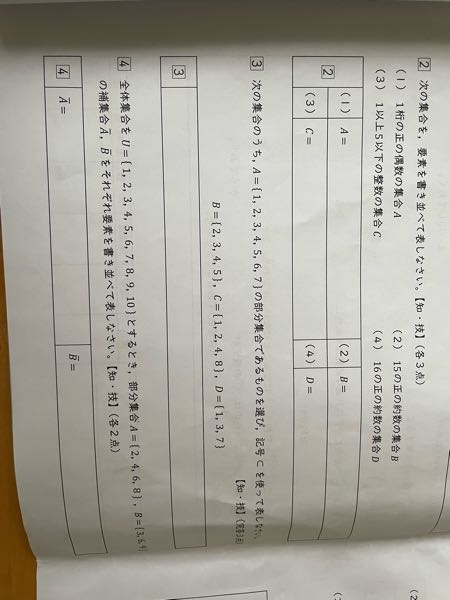 2 次の集合を，要素を書き並べて表しなさい。【知・技】(各3点)
(1) 1桁の正の偶数の集合A (2) 15の正の約数の集合B
(3) 1以上5以下の整数の集合C (4) 16の正の約数の集合D
2 (1) A= (2) B=
(3) C= (4) D=
3 次の集合のうち，A={1, 2, 3, 4, 5, 6, 7}の部分集合であるものを選び，記号⊂を使って表しなさい。
【知・技】(完答3点)
B={2, 3, 4, 5}, C={1, 2, 4, 8}, D={1, 3, 7}
3
4 全体集合をU={1, 2, 3, 4, 5, 6, 7, 8, 9, 10}とするとき，部分集合A={2, 4, 6, 8}, B={3, 6, 9}
の補集合A̅, B̅をそれぞれ要素を書き並べて表しなさい。【知・技】(各2点)
4 A̅= B̅=